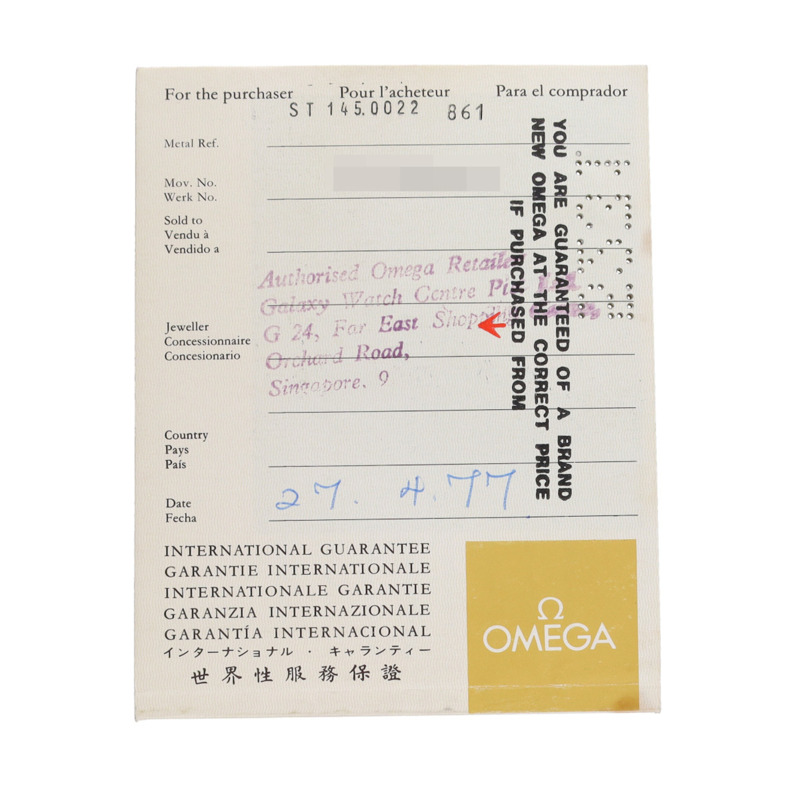 For the purchaser Pour l'acheteur Para el comprador
ST 145.0022 861
Metal Ref.
Mov. No.
Werk No.
Sold to
Vendu à
Vendido a
Authorised Omega Retailer
Galaxy Watch Centre
G 24, Far East Shopping
Orchard Road,
Singapore. 9
Jeweller
Concessionnaire
Concesionario
YOU ARE GUARANTEED OF A BRAND
NEW OMEGA AT THE CORRECT PRICE
IF PURCHASED FROM
Country
Pays
País
Date
Fecha
27. 4. 77
INTERNATIONAL GUARANTEE
GARANTIE INTERNATIONALE
INTERNATIONALE GARANTIE
GARANZIA INTERNAZIONALE
GARANTÍA INTERNACIONAL
インターナショナル · ギャランティー
世界性服務保證
Ω
OMEGA